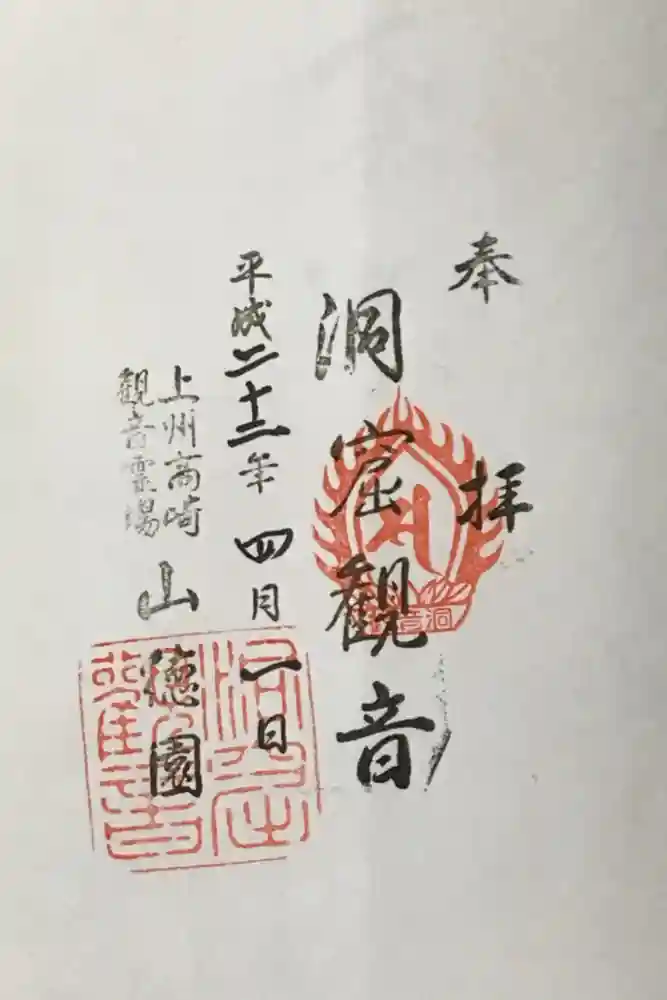 奉拝
洞窟観音
平成二十二年四月一日
上州高崎
観音霊場
山徳園
洞窟
観音